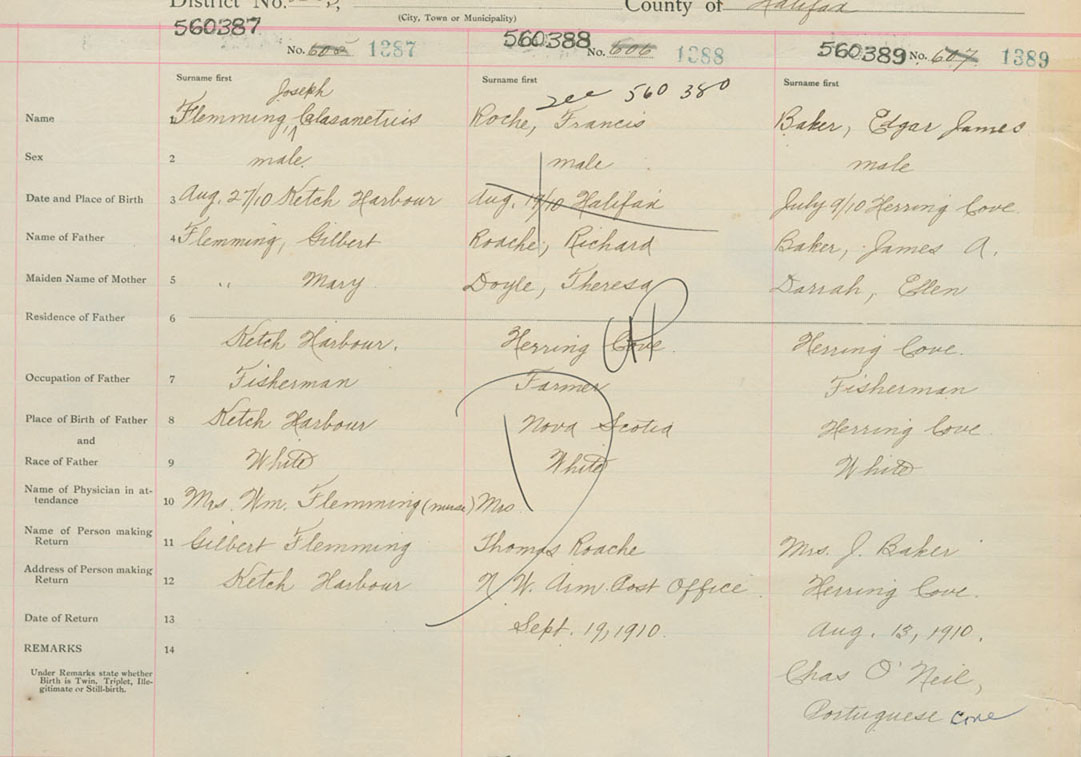 District No.
County of Halifax
(City, Town or Municipality)
560387 No. 605 1387
560388 No. 606 1388
560389 No. 607 1389
Surname first
Surname first
Surname first
see 560 380
Joseph
Name 1 Flemming, Calasanetruis
Roche, Francis
Baker, Edgar James
Sex 2 male
male
male
Date and Place of Birth 3 Aug. 27/10 Ketch Harbour
Aug. 19/10 Halifax
July 9/10 Herring Cove.
Name of Father 4 Flemming, Gilbert
Roache, Richard
Baker, James A.
Maiden Name of Mother 5 " Mary
Doyle, Theresa
Darrah, Ellen
Residence of Father 6
Ketch Harbour.
Herring Cove.
Herring Cove.
Occupation of Father 7 Fisherman
Farmer
Fisherman
Place of Birth of Father 8 Ketch Harbour
Nova Scotia
Herring Cove
and
Race of Father 9 White
White
White
Name of Physician in at-
tendance 10 Mrs. Wm. Flemming (nurse)
Mrs.
Name of Person making
Return 11 Gilbert Flemming
Thomas Roache
Mrs. J. Baker
Address of Person making
Return 12 Ketch Harbour
N. W. Arm Post Office
Herring Cove.
Date of Return 13
Sept. 19, 1910.
Aug. 13, 1910.
REMARKS 14
Under Remarks state whether
Birth is Twin, Triplet, Ille-
gitimate or Still-birth.
Chas O'Neil,
Portuguese Cove